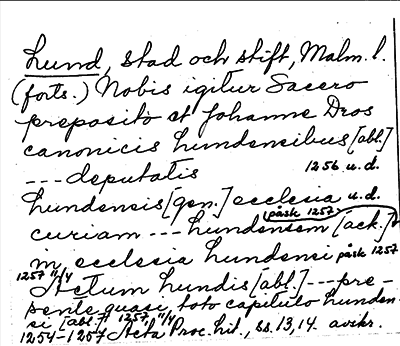 Lund, stad och stift, Malm. l.
(forts.) Nobis igitur Sacero
preposito et Johanne Dros
canonicis Lundensibus [abl.]
--- deputatis 1256 u.d.
Lundensis [gen.] ecclesia u.d.
curiam --- Lundensem [ack.] påsk 1257
in ecclesia Lundensi påsk 1257
1257 11/4
Actum Lundis [abl.] --- pre-
sente quasi toto capitulo Lunden-
si [abl.] 1257, 11/4
1254-1257 Acta Proc. lit., ss. 13, 14. avskr.